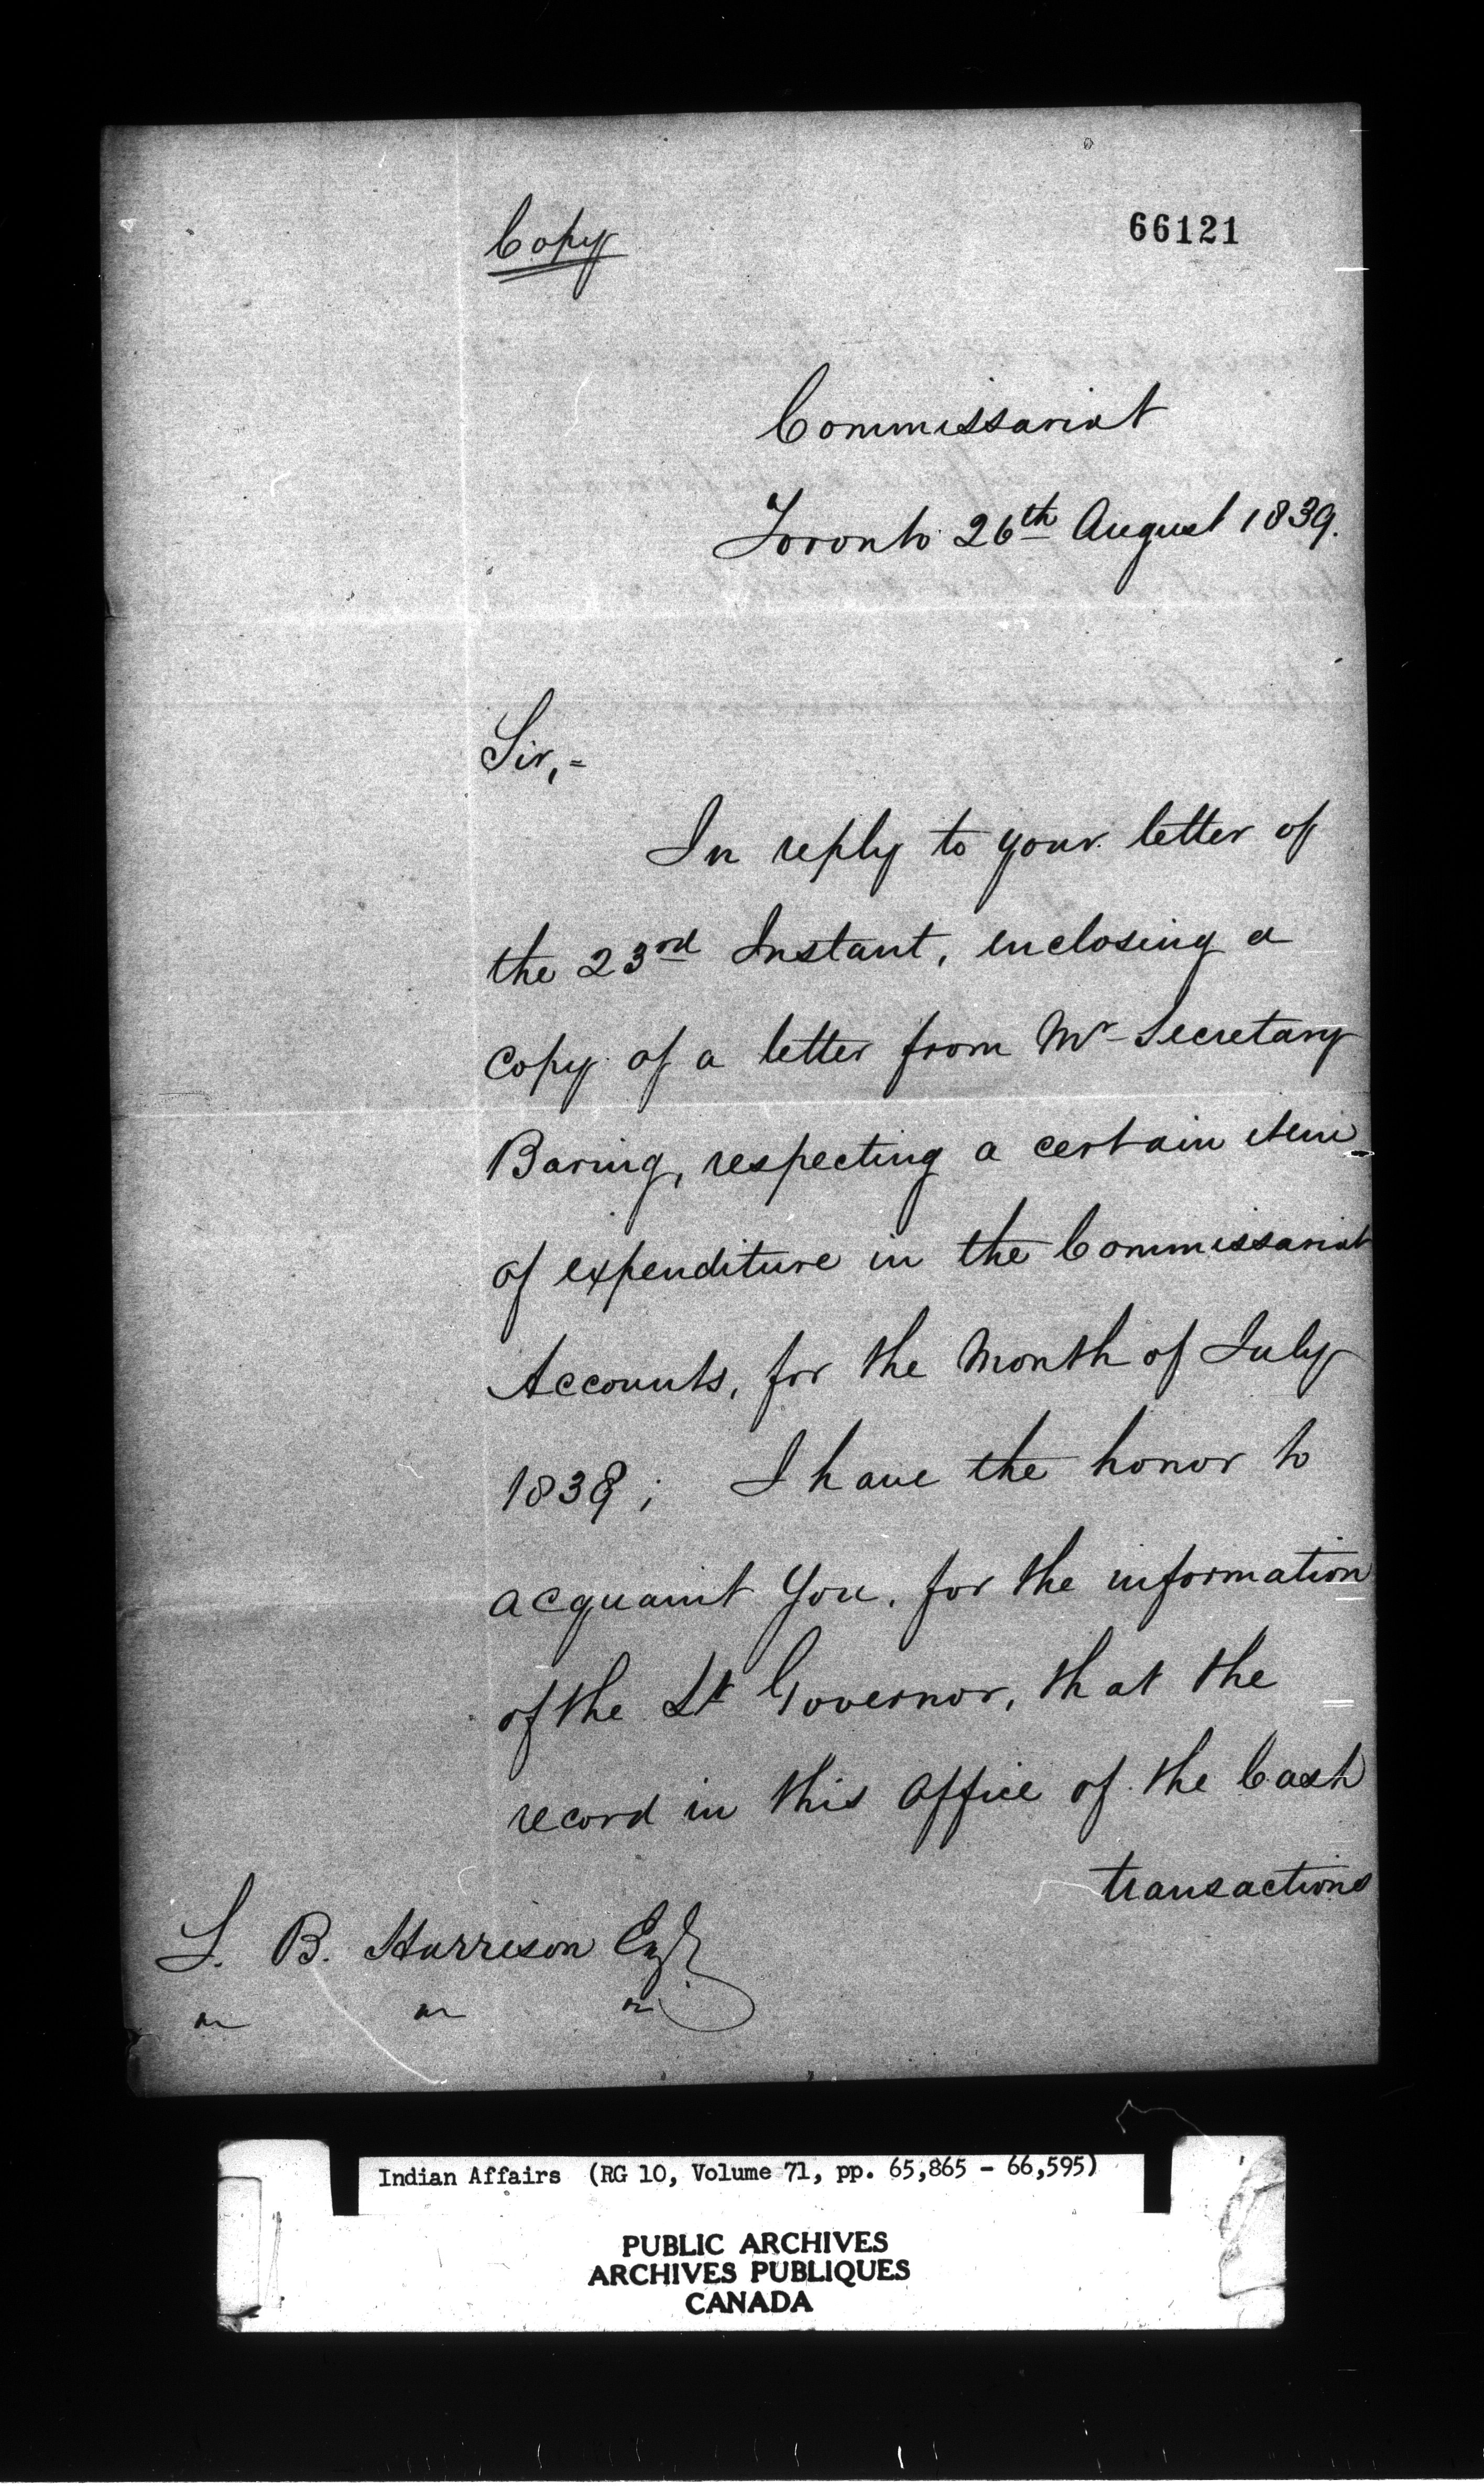 Copy
66121
Commissariat
Toronto 26th August 1839.
Sir,=
In reply to your letter of
the 23rd Instant, enclosing a
copy of a letter from Mr Secretary
Baring, respecting a certain item
of expenditure in the Commissariat
Accounts, for the Month of July
1838; I have the honor to
acquaint You, for the information
of the Lt Governor, that the
record in this Office of the Cash
transactions
S. B. Harrison Esqr
" " "
Indian Affairs (RG 10, Volume 71, pp. 65,865 - 66,595)
PUBLIC ARCHIVES
ARCHIVES PUBLIQUES
CANADA